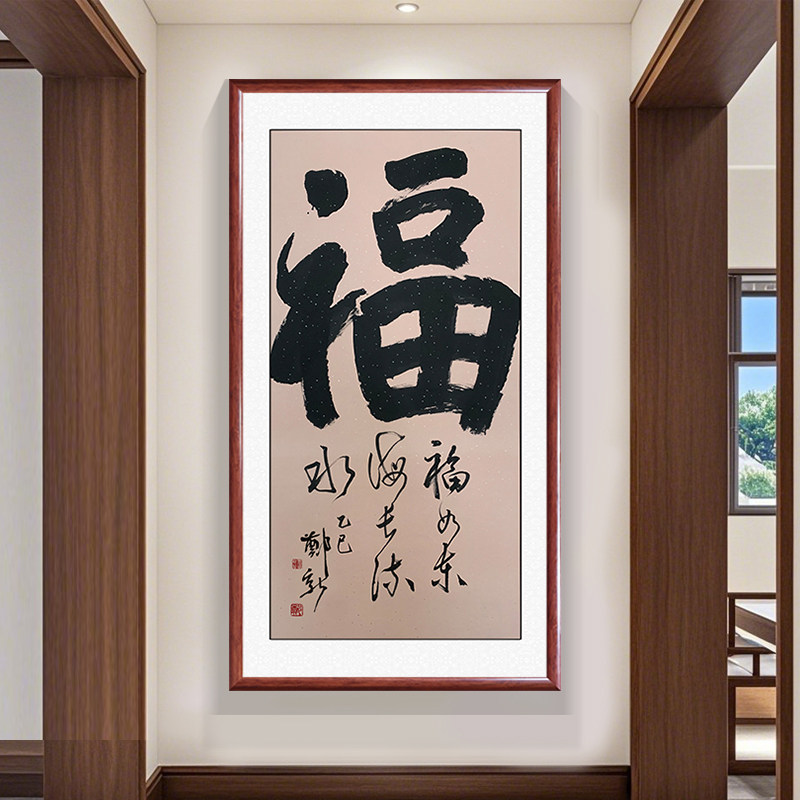 福
福如东
海长流
水
乙巳
鄭新